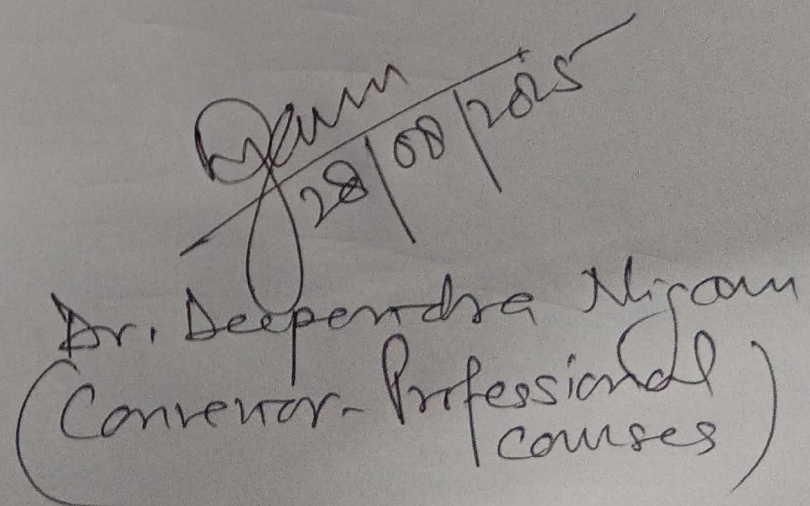 28/08/2025
Dr. Deependra Nigam
(Convenor- Professional
courses)